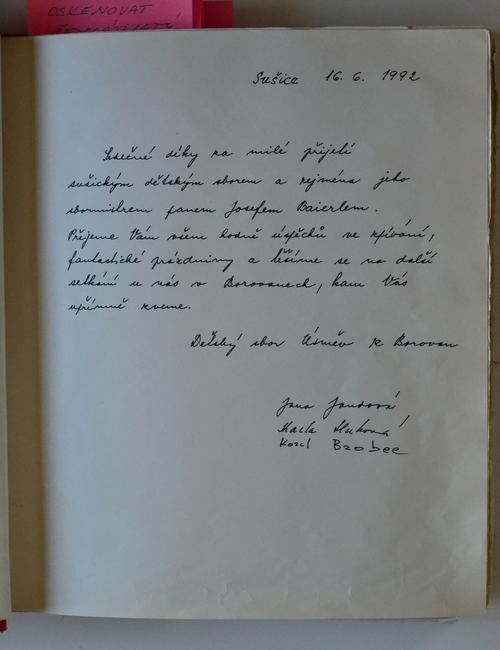 OSKENOVAT
Sušice 16. 6. 1992
Srdečné díky za milé přijetí
sušickým dětským sborem a zejména jeho
sbormistrem panem Josefem Baierlem.
Přejeme Vám všem hodně úspěchů ve zpívání,
fantastické prázdniny a těšíme se na další
setkání u nás v Borovanech, kam Vás
upřímně zveme.
Dětský sbor Úsměv z Borovan
Jana Jandová
Karel Brobec